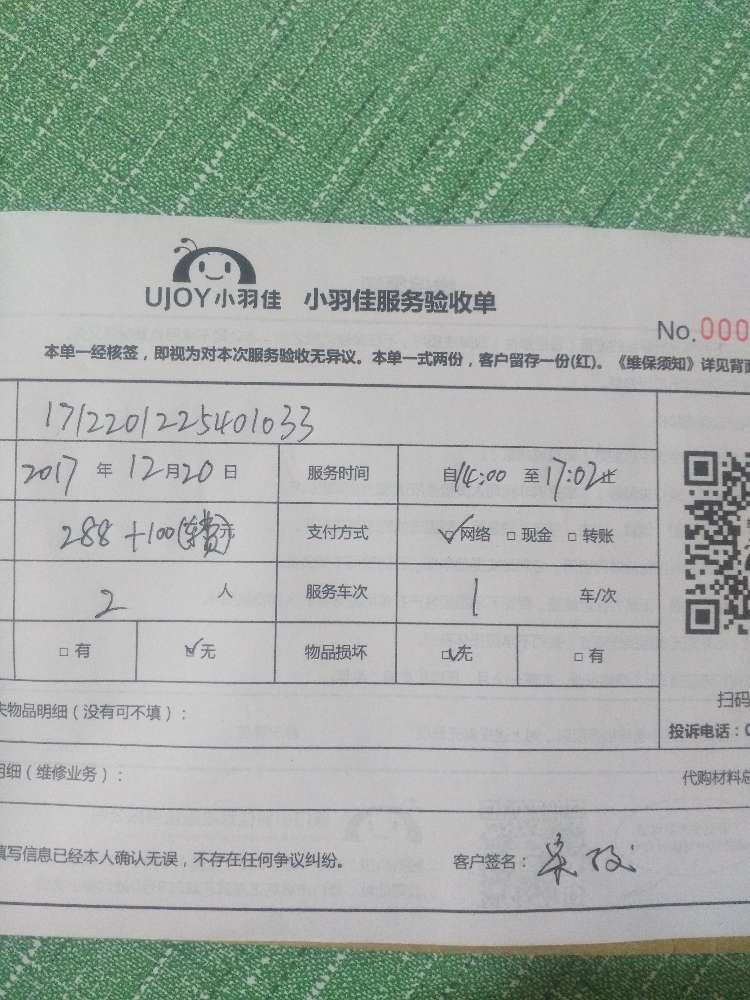 UJOY小羽佳 小羽佳服务验收单
No.000
本单一经核签，即视为对本次服务验收无异议。本单一式两份，客户留存一份(红)。《维保须知》详见背面
1712201225401033
2017 年 12月20 日 服务时间 自14:00 至17:02止
288+100(车费)元 支付方式 网络 现金 转账
2 人 服务车次 1 车/次
有 无 物品损坏 无 有
失物品明细（没有可不填）：
扫码
投诉电话：0
明细（维修业务）：
代购材料总
填写信息已经本人确认无误，不存在任何争议纠纷。 客户签名：